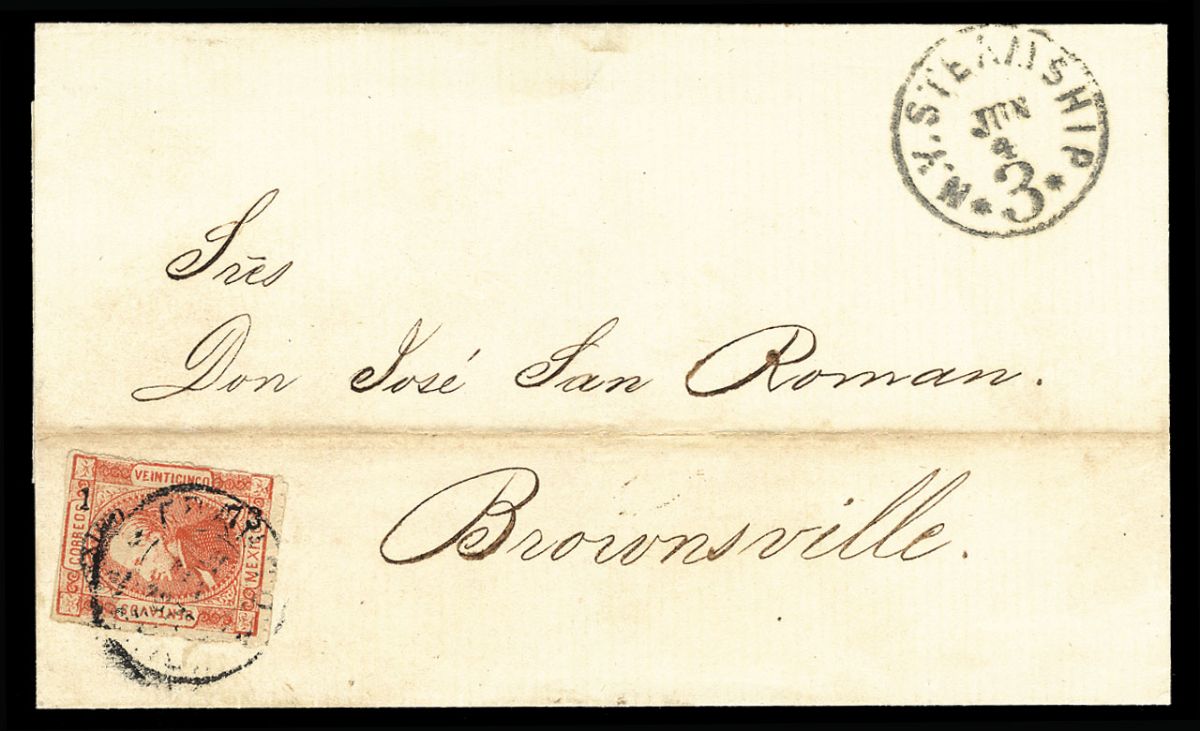 N.Y. STEAMSHIP
JUN
4
* 3 *
Sres
Don José San Roman.
Brownsville.
VEINTICINCO
1 73
CORREOS
MEXICO
CENTAVOS